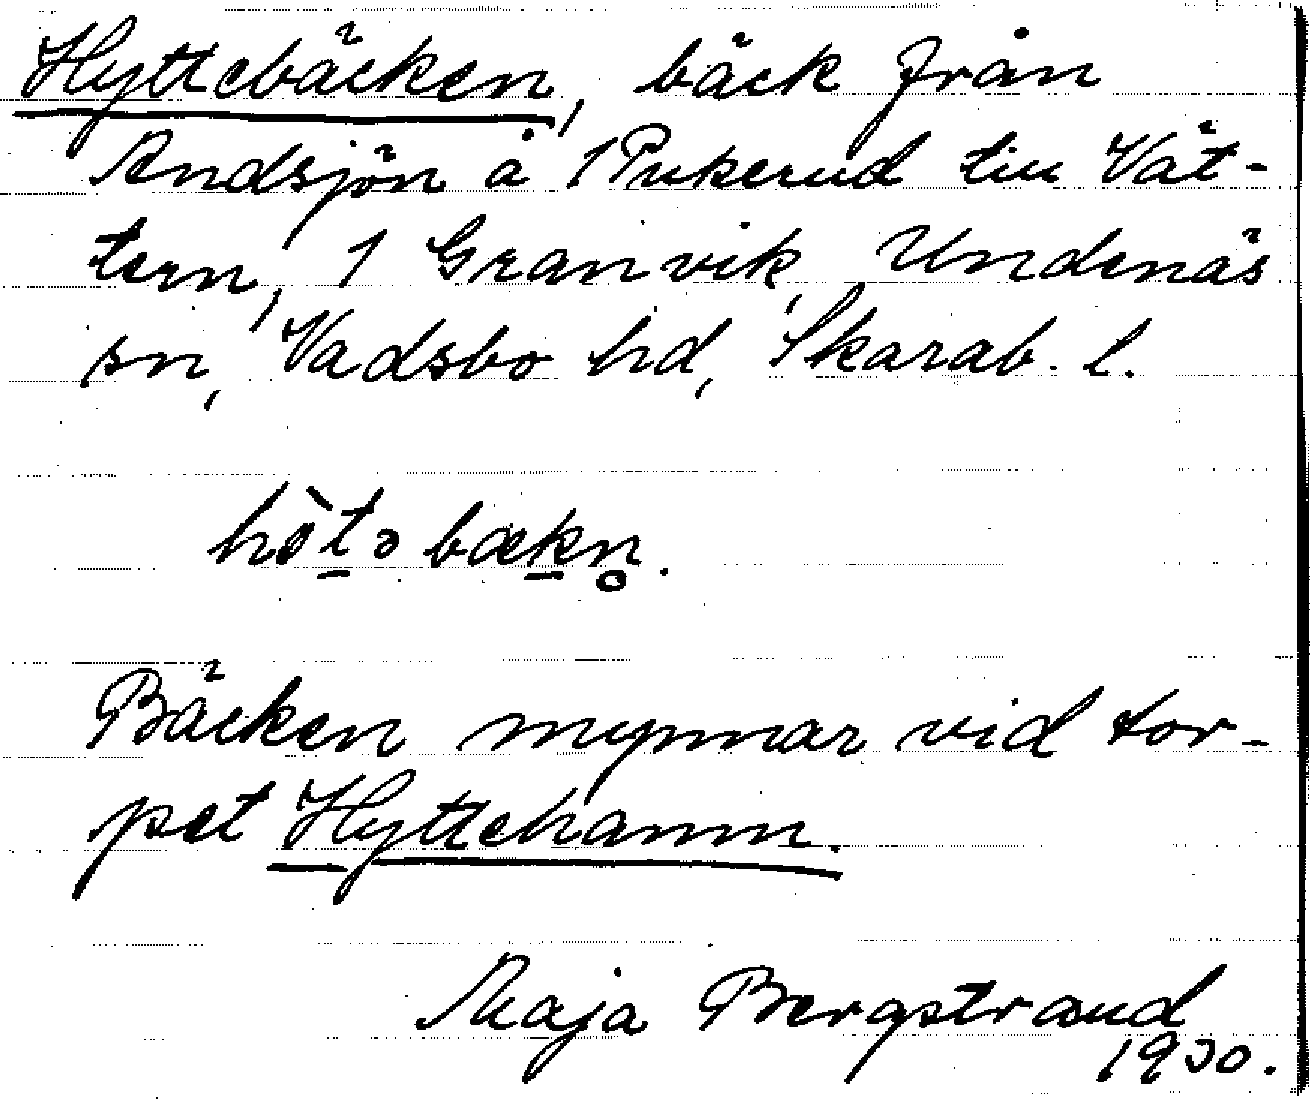 Hyttebäcken, bäck från
Andsjön å 1 Pukerud till Vät-
tern, 1 Granvik, Undenäs
sn, Vadsbo hd, Skarab. l.
hòtə bækn̥.
Bäcken mynnar vid tor-
pet Hyttehamn.
Maja Bergstrand
1930.